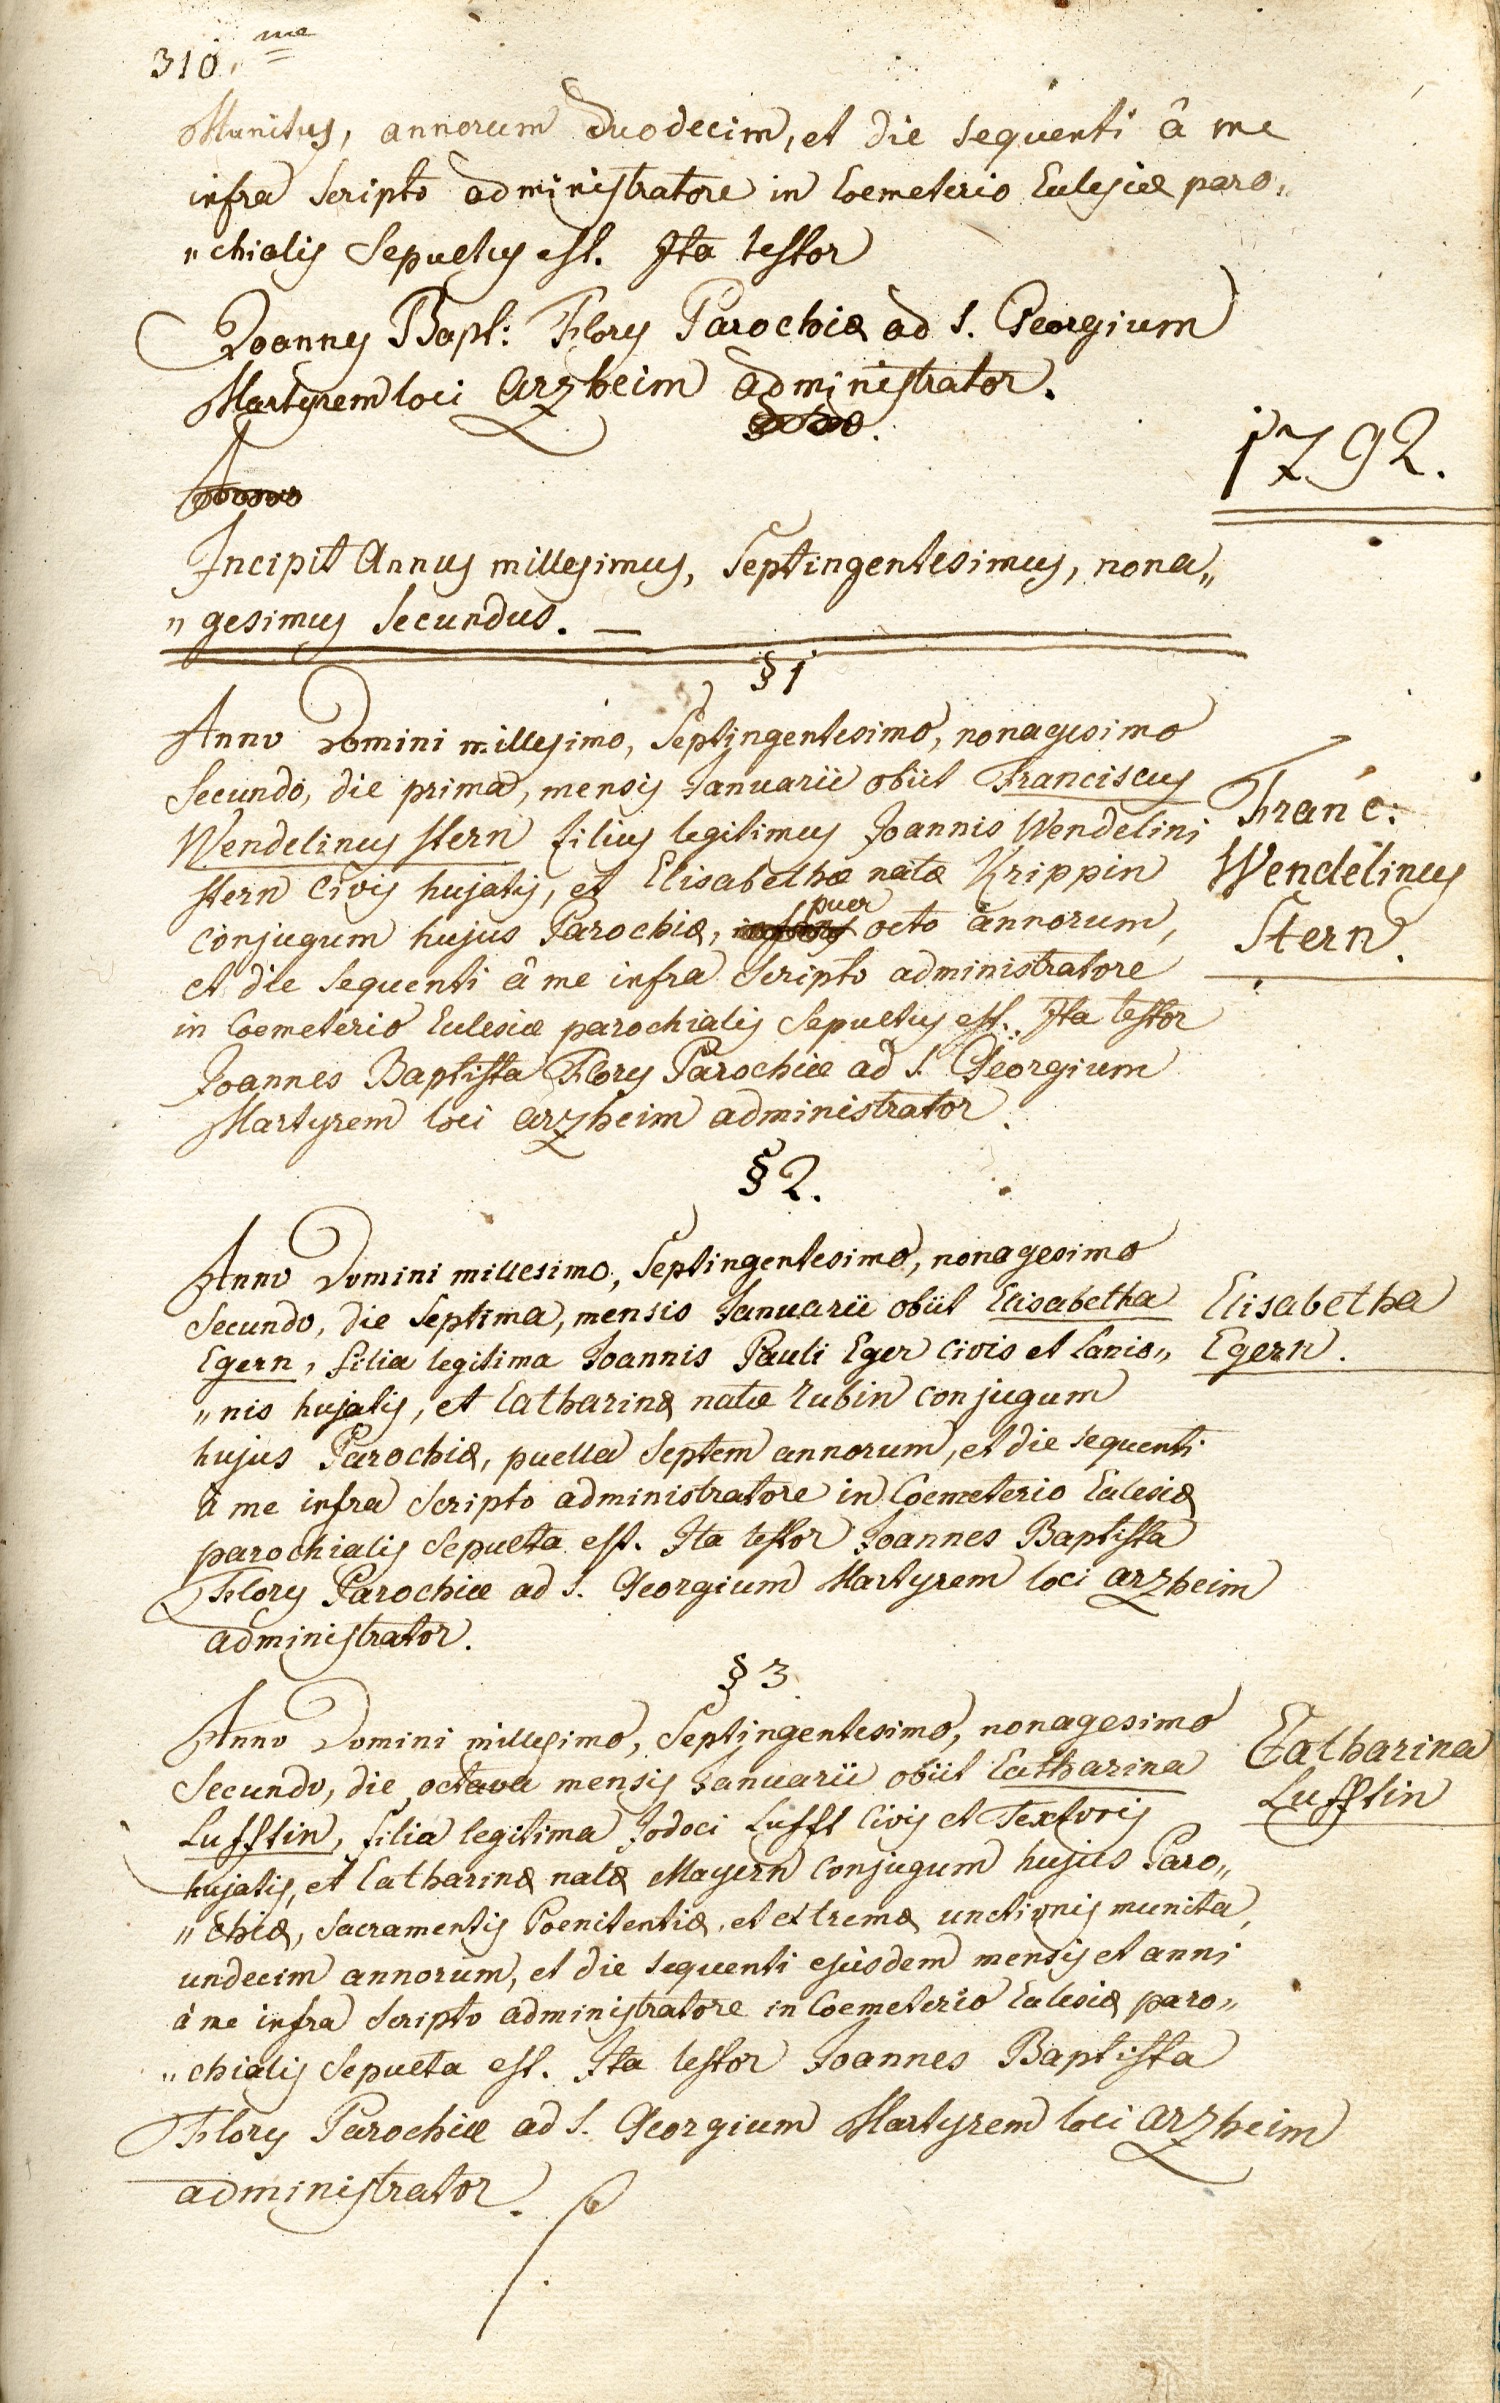 310. me
Munitus, annorum duodecim, et die sequenti â me
infra Scripto administratore in Coemeterio Eclesiæ paro„
„chialis Sepultus est. Ita testor
Joannes Bapt: Flory Parochiæ ad S. Georgium
Martyrem loci Arzheim administrator.
1792.
Incipit Annus millesimus, Septingentesimus, nona„
„gesimus Secundus. —
§ 1
Anno Domini millesimo, Septingentesimo, nonagesimo
Secundo, die prima, mensis Januarii obiit Franciscus
Wendelinus Stern filius legitimus Joannis Wendelini
Stern Civis hujatis, et Elisabethæ natæ Krippin
conjugum hujus Parochiæ, puer octo annorum,
et die sequenti â me infra Scripto administratore
in Coemeterio Eclesiæ parochialis Sepultus est. Ita testor
Joannes Baptista Flory Parochiæ ad S. Georgium
Martyrem loci Arzheim administrator.
Franc:
Wendelinus
Stern.
§ 2.
Anno Domini millesimo, Septingentesimo, nonagesimo
Secundo, die Septima, mensis Januarii obiit Elisabetha
Egern, filia legitima Joannis Pauli Eger Civis et Lanio„
„nis hujatis, et Catharinæ natæ Rubin conjugum
hujus Parochiæ, puella Septem annorum, et die sequenti
à me infra Scripto administratore in Coemeterio Eclesiæ
parochialis Sepulta est. Ita testor Joannes Baptista
Flory Parochiæ ad S. Georgium Martyrem loci Arzheim
administrator.
Elisabetha
Egern.
§ 3
Anno Domini millesimo, Septingentesimo, nonagesimo
Secundo, die octava mensis Januarii obiit Catharina
Lufftin, filia legitima Jodoci Lufft Civis et Textoris
hujatis, et Catharinæ natæ Mayern conjugum hujus Paro„
„chiæ, Sacramentis Poenitentiæ, et extremæ unctionis munita,
undecim annorum, et die sequenti ejusdem mensis et anni
à me infra Scripto administratore in Coemeterio Eclesiæ paro„
„chialis Sepulta est. Ita testor Joannes Baptista
Flory Parochiæ ad S. Georgium Martyrem loci Arzheim
administrator.
Catharina
Lufftin